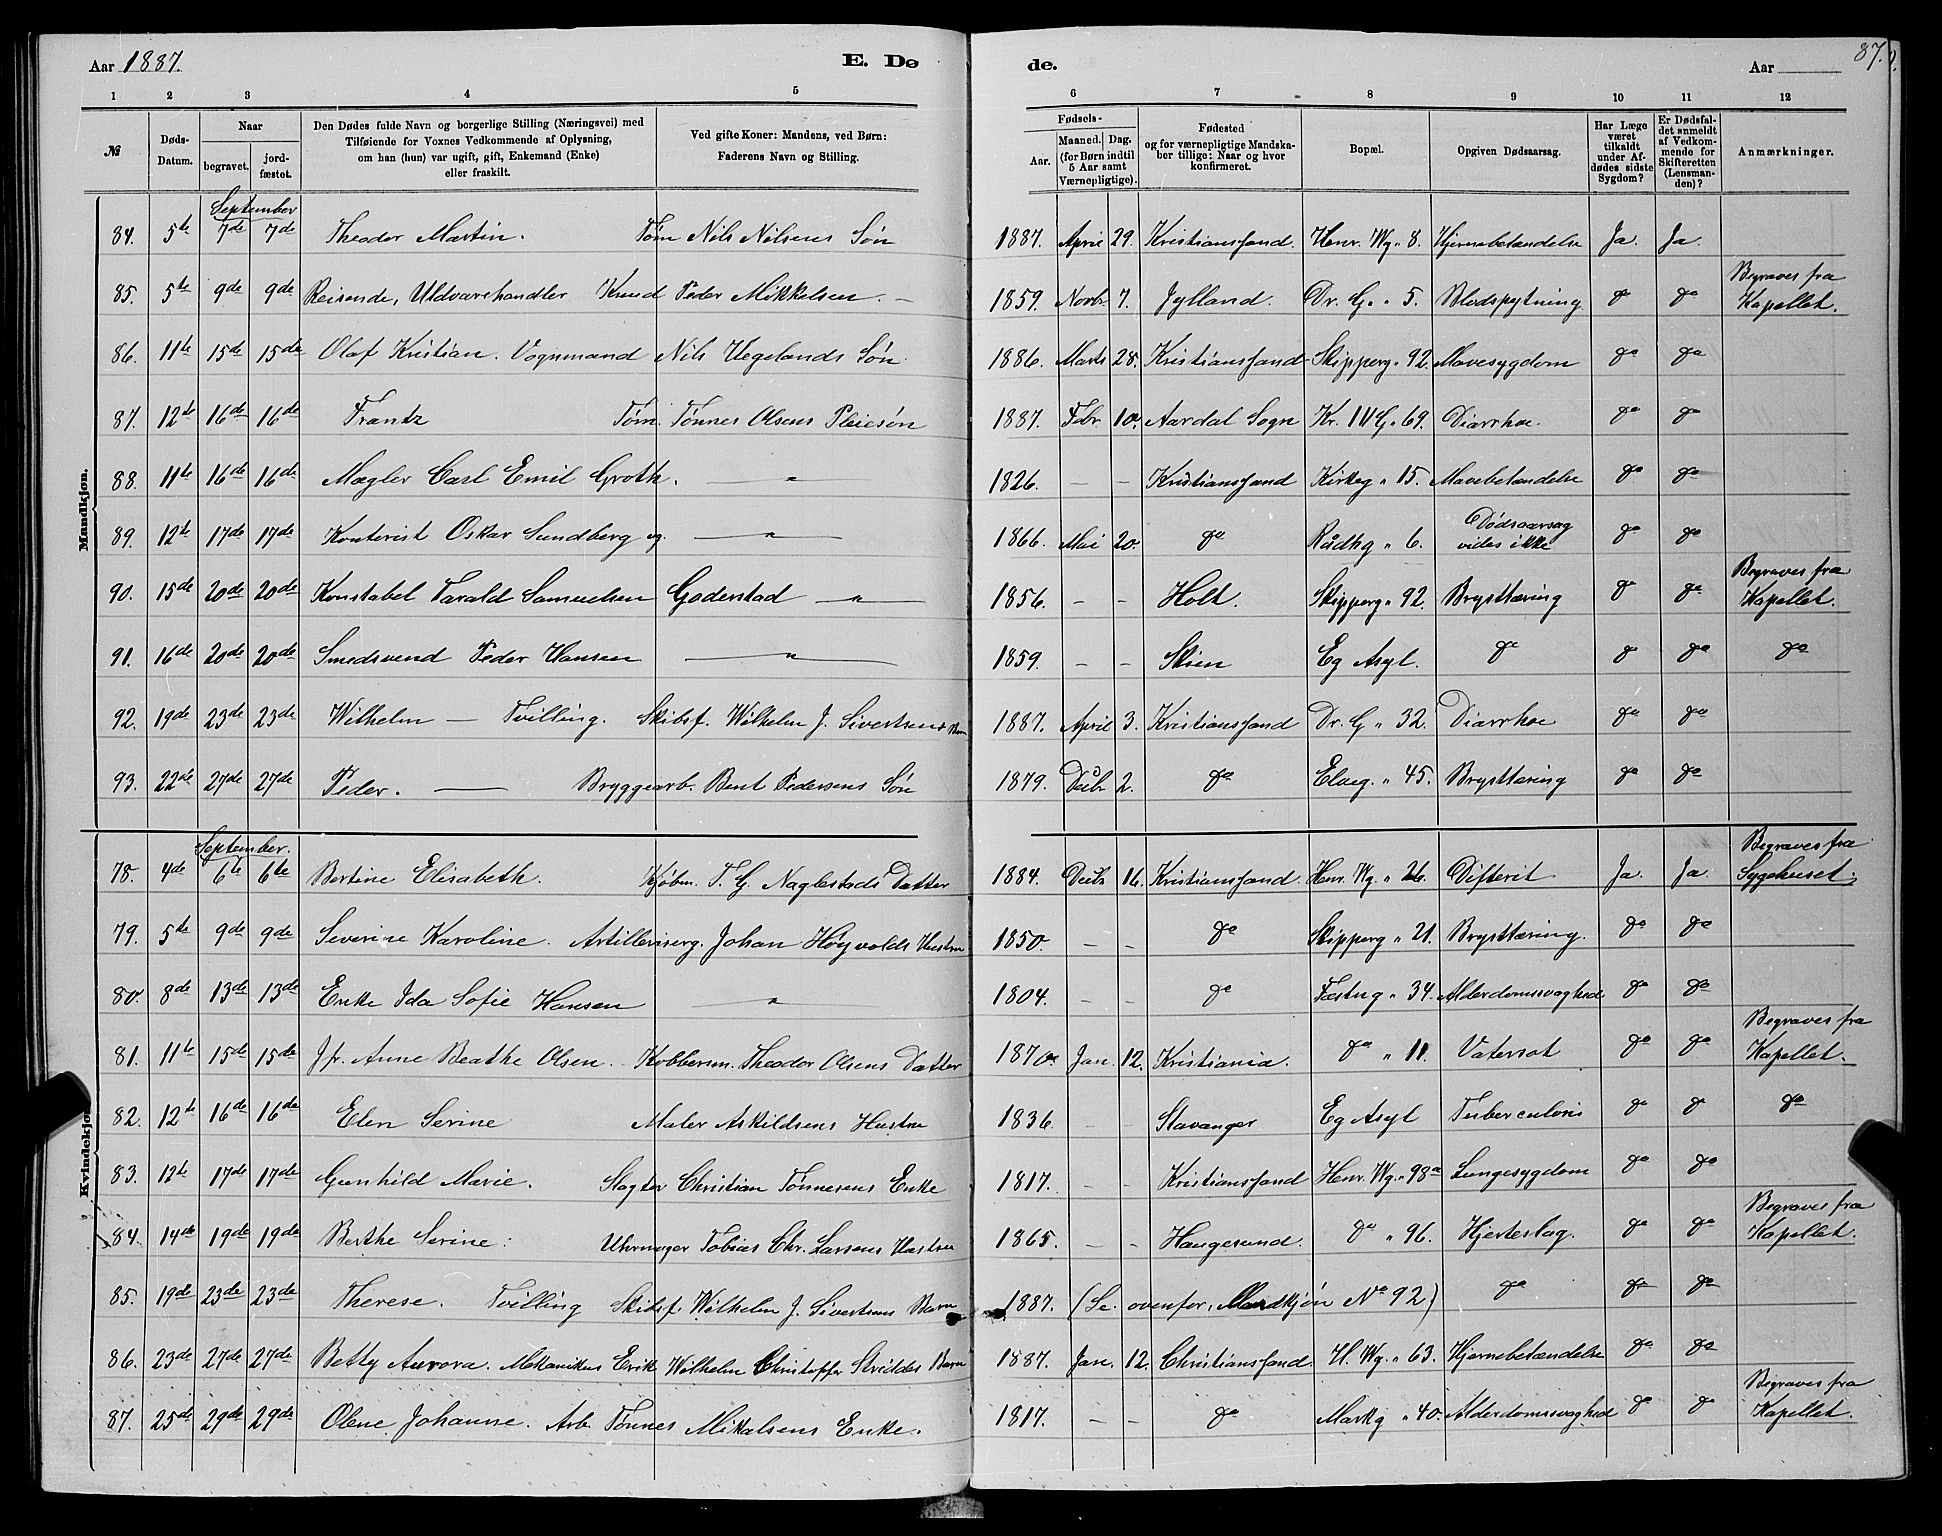 Aar 1887. E. Dø de. Aar 87.
1 2 3 4 5 6 7 8 9 10 11 12
№ Døds-Datum. Naar begravet. jordfæstet. Den Dødes fulde Navn og borgerlige Stilling (Næringsvei) med Tilføiende for Voxnes Vedkommende af Oplysning, om han (hun) var ugift, gift, Enkemand (Enke) eller fraskilt. Ved gifte Koner: Mandens, ved Børn: Faderens Navn og Stilling. Fødsels- Aar. Maaned. Dag. (for Børn indtil 5 Aar samt Værnepligtige). Fødested og for værnepligtige Mandskaber tillige: Naar og hvor konfirmeret. Bopæl. Opgiven Dødsaarsag. Har Læge været tilkaldt under Afdødes sidste Sygdom? Er Dødsfaldet anmeldt af Vedkommende for Skifteretten (Lensmanden)? Anmærkninger.
Mandkjøn.
September
84. 5te 7de 7de Theodor Martin. Tøm Nils Nilsens Søn 1887. April 29. Kristianssand. Henr. Wg. 8. Hjernebetændelse Ja. Ja.
85. 5te 9de 9de Reisende, Uldvarehandler Knud Peder Mikkelsen. — 1859. Novbr 7. Jylland. Dr. G. " 5. Blodspytning do do Begraves fra Kapellet.
86. 11te 15de 15de Olaf Kristian. Vognmand Nils Vegelands Søn. 1886. Marts 28. Kristianssand Skipperg " 92. Mavesygdom do do
87. 12te 16de 16de Frantz Tøm. Tønnes Olsens Pleiesøn 1887. Febr 10. Aardal Sogn Kr. IV G. 69. Diarrhoe. do do
88. 11te 16de 16de Mægler Carl Emil Groth. — " 1826. – – Kristianssand Kirkeg " 15. Mavebetændelse do do
89. 12te 17de 17de Kontorist Oskar Sundberg ug. — " — 1866. Mai 20. do Rådhg " 6. Dødsaarsag vides ikke do do
90. 15de 20de 20de Konstabel Tarald Samuelsen Goderstad — " — 1856. – – Holt. Skipperg " 92. Brysttæring do do Begraves fra Kapellet.
91. 16de 20de 20de Smedsvend Peder Hansen — " — 1859. – – Skien Eg Asyl. do do do do
92. 19de 23de 23de Wilhelm — Tvilling. Skibsf. Wilhelm J. Sivertsens Barn 1887. April 3. Kristianssand Dr. G " 32. Diarrhoe do do
93. 22de 27de 27de Peder. — Bryggearb. Bent Pedersens Søn 1879. Decbr 2. do Elveg. " 45. Brysttæring do do
Kvindekjøn.
September.
78. 4de 6te 6te Bertine Elisabeth. Kjøbm. T. G. Naglestads Datter 1884. Decbr 16. Kristianssand. Henr. Wg. " 26. Difterit Ja. Ja. Begraves fra Sygehuset.
79. 5te 9de 9de Severine Karoline. Artilleriserg. Johan Høyvolds Hustru 1850. – – do Skipperg " 21. Brysttæring. do do
80. 8de 13de 13de Enke Ida Sofie Hansen — " — 1804. – – do Fæstng " 34. Alderdomssvaghed do do
81. 11te 15de 15de Jfr. Anne Beathe Olsen. Kobbersm. Theodor Olsens Datter 1870. Jan. 12. Kristiania. do " 11. Vatersot do do Begraves fra Kapellet.
82. 12te 16de 16de Elen Serine Maler Askildsens Hustru 1836. – – Stavanger Eg Asyl Tuberculosis do do do
83. 12te 17de 17de Gunhild Marie. Slagter Christian Tønnesens Enke 1817. – – Kristianssand Henr. Wg. " 98a Lungesygdom do do
84. 14de 19de 19de Berthe Serine. Uhrmager Tobias Chr. Larsens Hustru 1865. – – Haugesund. do " 96. Hjerteslag. do do Begraves fra Kapellet.
85. 19de 23de 23de Therese. Tvilling Skibsf. Wilhelm J. Sivertsens Barn 1887. (Se ovenfor, Mandkjøn No 92) do do do
86. 23de 27de 27de Betty Aurora. Mekanikus Erik Wilhelm Christoffer Skriddes Barn 1887. Jan. 12. Christianssand. H. Wg. " 63. Hjernebetændelse do do
87. 25de 29de 29de Olene Johanne. Arb. Tønnes Mikalsens Enke. 1817. – – do Markg " 40. Alderdomssvaghed do do Begraves fra Kapellet.